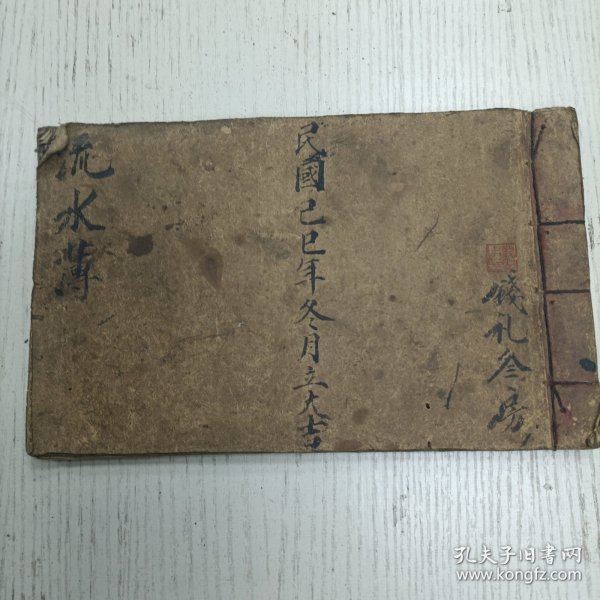 餞礼叁房
民國己巳年冬月立大吉
流水薄
孔夫子旧书网
www.kongfz.com